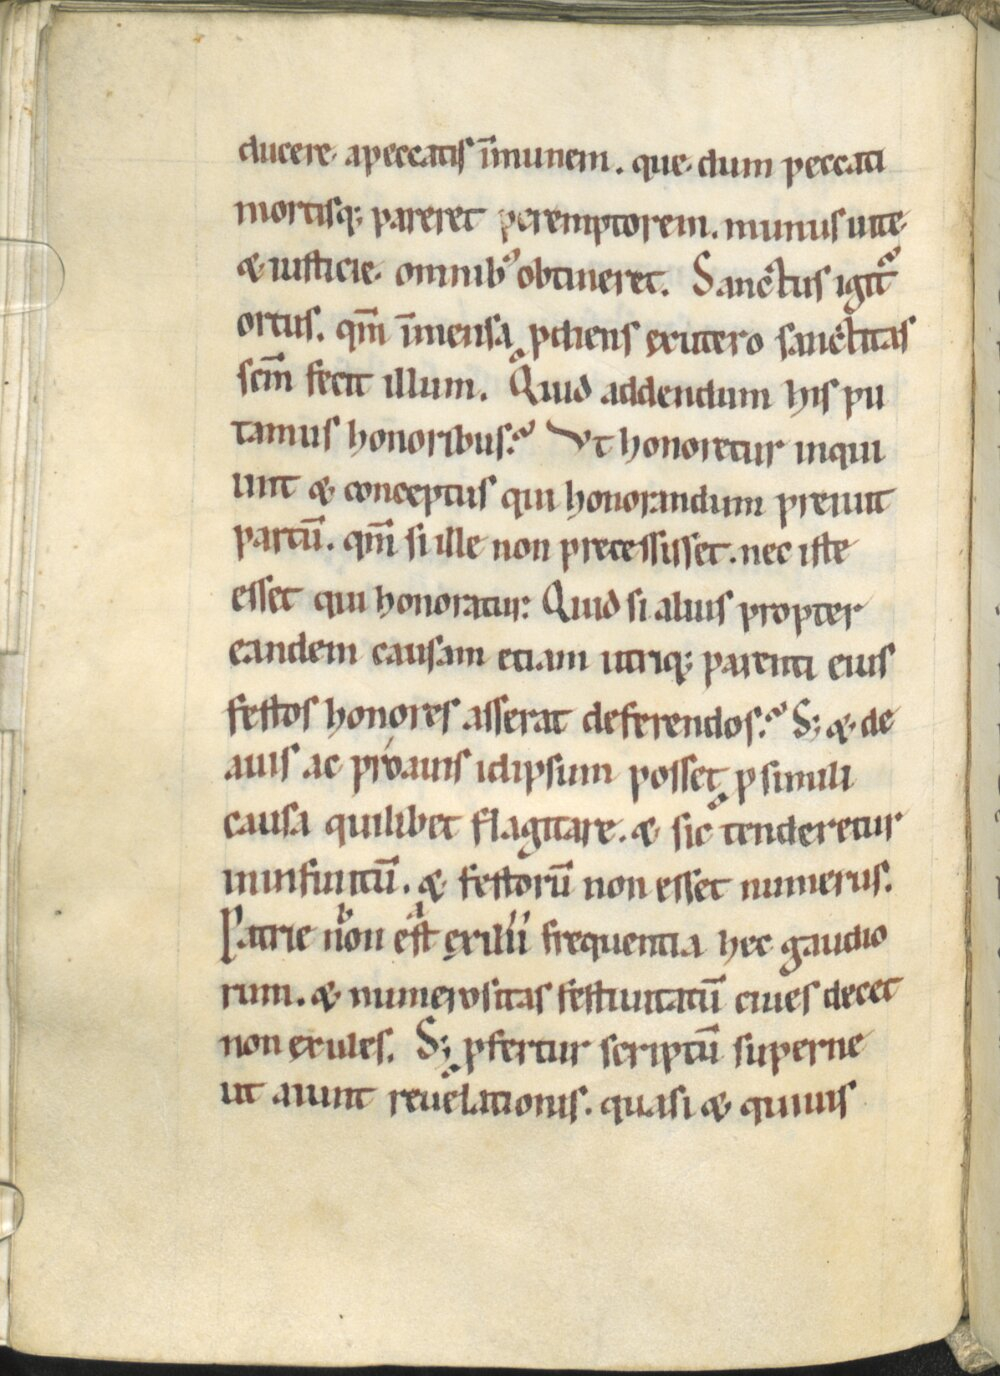 ducere· apeccatis īmunem. que dum peccati
mortisq; pareret peremptorem. munus uite
& iusticie· omnibꝰ obtineret. Sanctus igit᷑
ortus. qm̄ īmensa ꝓdiens exutero sanctitas
scm̄ fecit illum. Quid addendum his pu
tamus honoribus? Vt honoretur inqui
unt & conceptus qui honorandum preuiit
partū. qm̄ si ille non precessisset. nec iste
esset qui honoratur: Quid si alius propter
eandem causam etiam utriq; parenti eius
festos honores asserat deferendos? S; & de
auis ac proauis idipsum posset ꝓ simili
causa quilibet flagitare. & sic tenderetur
ininfinitū. & festorū non esset numerus.
Patrie ᵇnon ᵃest exilii frequentia hec gaudio
rum. & numerositas festiuitatū ciues decet
non exules. S; ꝓfertur scriptū superne
ut aiunt reuelationis. quasi & quiuis